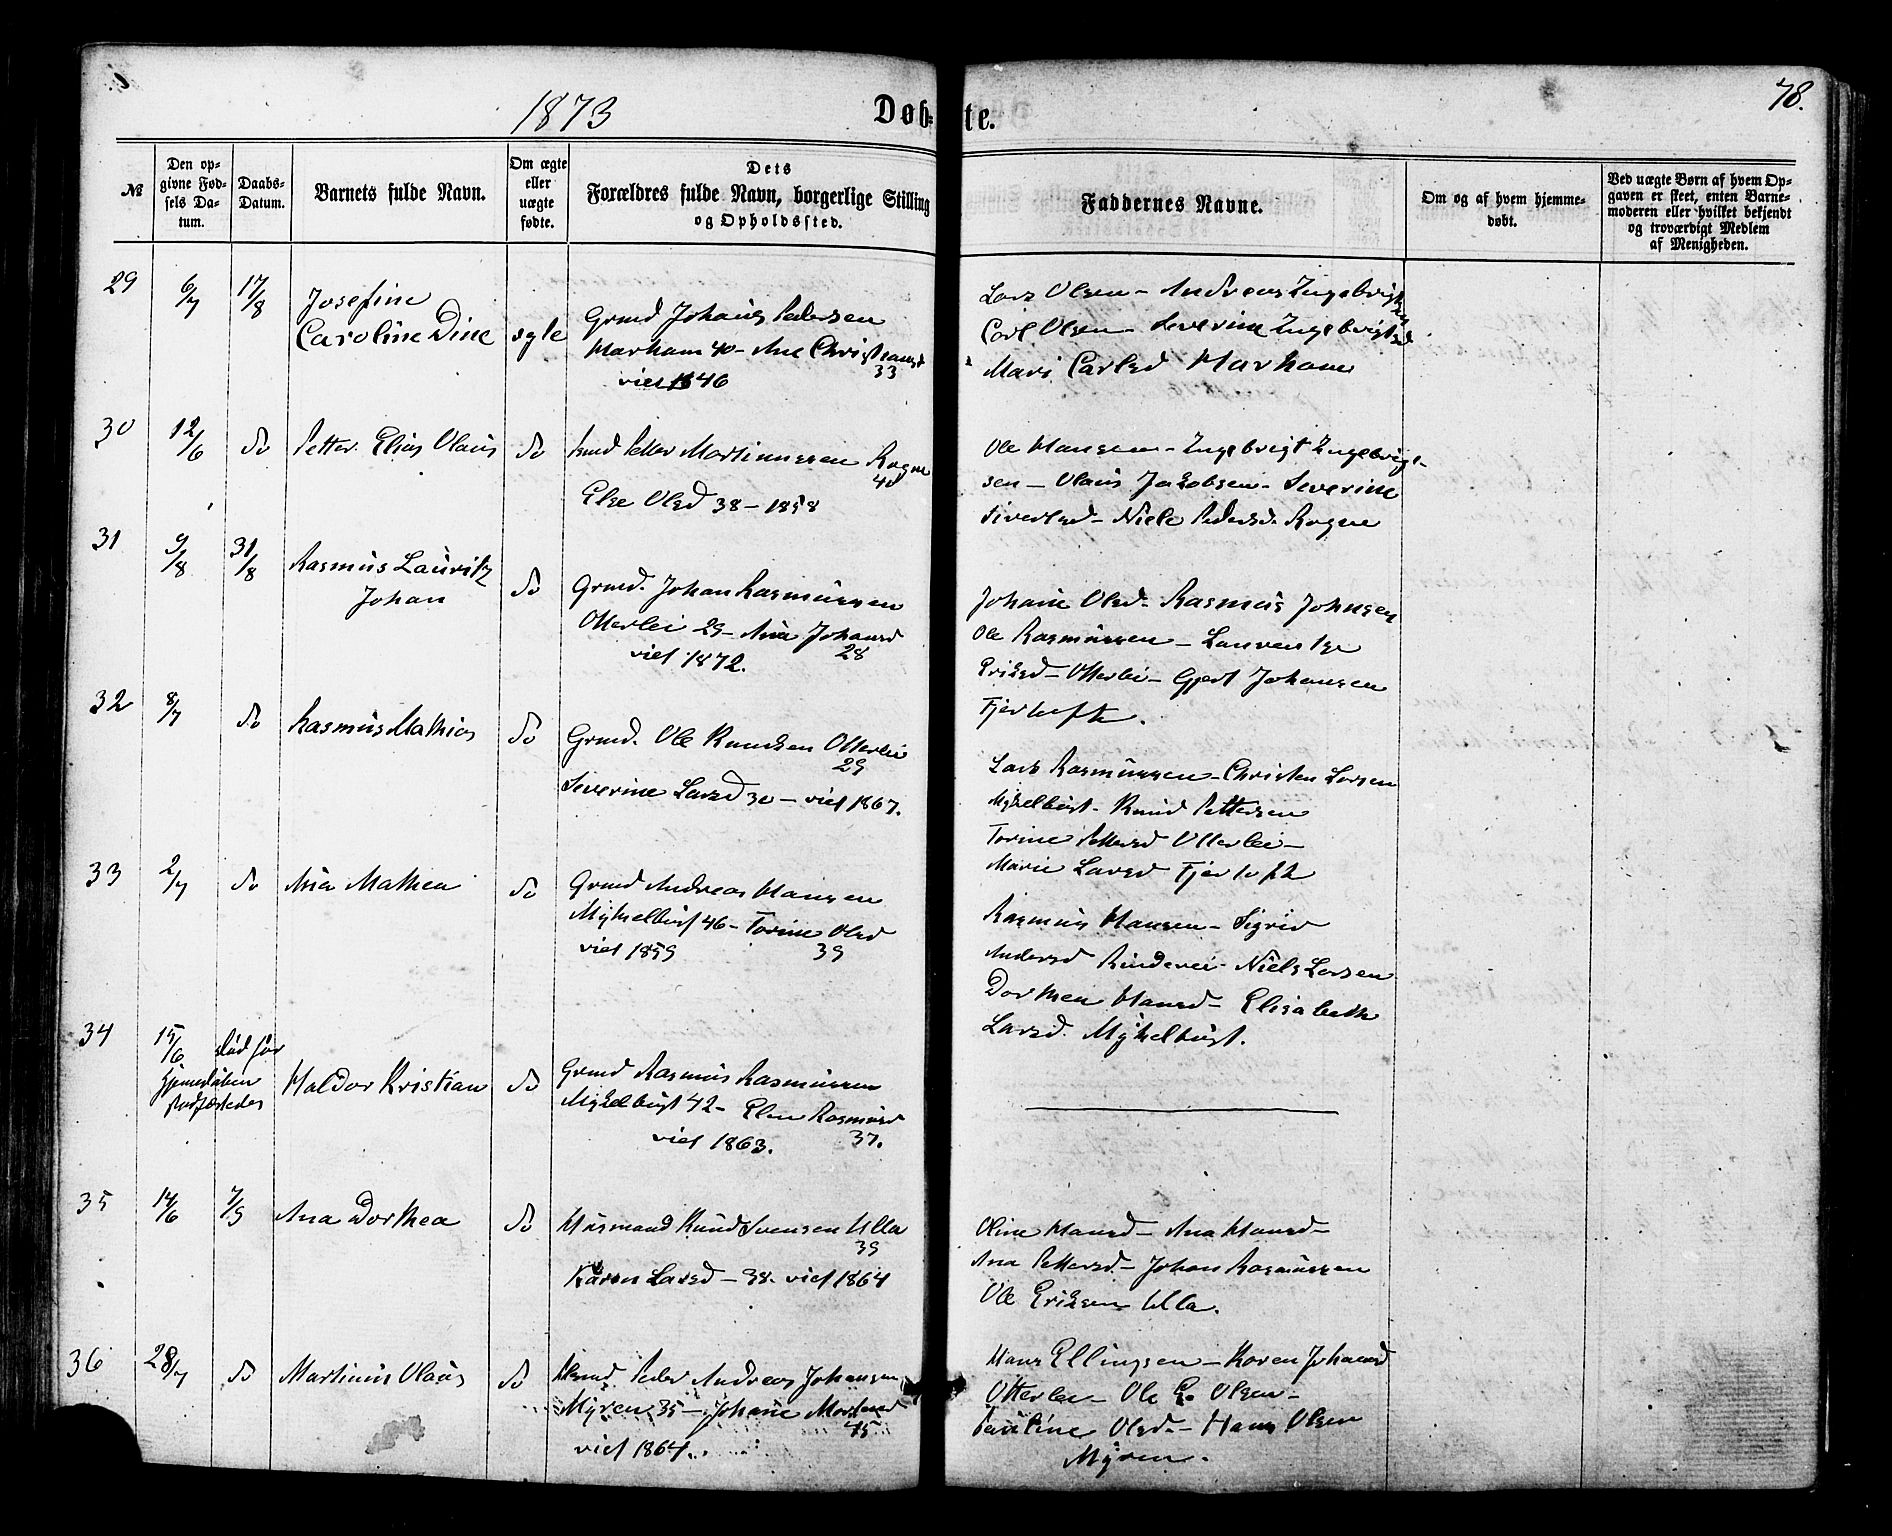 1873
Døb-te.
78.
№
Den op-
givne Fød-
sels Da-
tum.
Daabs-
Datum.
Barnets fulde Navn.
Om ægte
eller
uægte
fødte.
Dets
Forældres fulde Navn, borgerlige Stilling
og Opholdssted.
Faddernes Navne.
Om og af hvem hjemme-
døbt.
Ved uægte Børn af hvem Op-
gaven er skeet, enten Barne-
moderen eller hvilket bekjendt
og troværdigt Medlem
af Menigheden.
29
6/7
17/8
Josefine
Caroline Dine
ægte
Grmd Johans Pedersen
Marham 40 - Ane Christiansd
33
viet 1846
Lars Olsen - Andreas Ingebrigts
Carl Olsen - Severine Ingebrigtsd
Mari Carlsd Harham
30
12/6
do
Petter Elias Olaus
do
Petter Martinussen Rogne
40
Else Olsd 38 - 1858
Ole Hansen - Ingebrigt Ingebrigt-
sen - Olaus Jakobsen - Severine
Sivertsd - Niels Pedersd. Rogne
31
9/8
31/8
Rasmus Lauritz
Johan
do
Grmd. Johan Rasmussen
Otterlei 29 - Ana Johansd
28
viet 1872.
Johane Olsd - Rasmus Johnsen
Ole Rasmussen - Laurentse
Eriksd - Otterlei - Gjert Johansen
Fjertoft.
32
8/7
do
Rasmus Mathias
do
Grmd. Ole Knudsen Otterlei
29
Severine Larsd 30 - viet 1867.
Lars Rasmussen - Christen Larsen
Myklebust - Knud Pettersen
Torine Pettersd Otterlei -
Marie Larsd Fjertoft
33
2/7
do
Ana Mathea
do
Grmd Andreas Hansen
Myklebust 46 - Torine Olsd
39
viet 1859
Rasmus Hansen - Sigrid
Andersd Rinderei - Niels Larsen
Dorthea Hansd - Elisabeth
Larsd. Myklebust.
34
15/6
død før
stadfæstedes
Haldor Kristian
do
Grmd Rasmus Rasmussen
Myklebust 42 - Elen Rasmusd
37.
viet 1863.
35
14/6
7/9
Ana Dorthea
do
Husmand Knud Svensen Ulla
39
Karen Larsd - 38. viet 1864
Oline Hansd - Ana Hansd -
Ana Pettersd - Johan Rasmussen
Ole Eriksen Ulla.
36
28/7
do
Martinus Olaus
do
Peder Andreas Johansen
Myren 35 - Johane Mortensd
45
viet 1864.
Hans Ellingsen - Karen Johansd
Otterlei - Ole E. Olsen -
Pauline Olsd. - Hans Olsen
Myren.